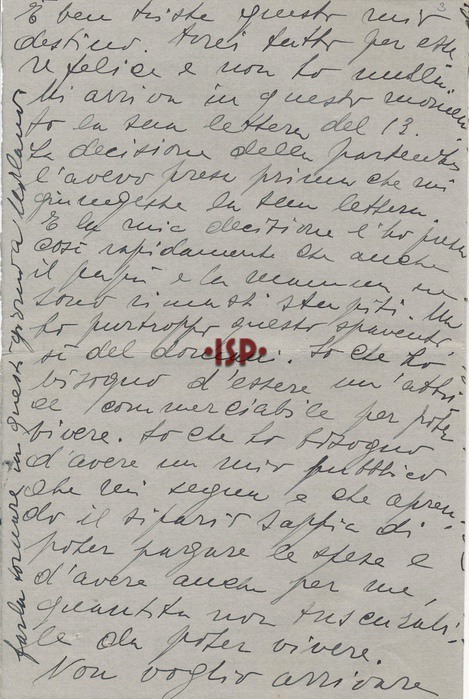 3
È ben triste questo mio
destino. Avrei tutto per esse
re felice e non ho nulla.
Mi arriva in questo momen
to la sua lettera del 13.
La decisione della partenza
l'avevo presa prima che mi
giungesse la sua lettera.
E la mia decisione l'ho presa
così rapidamente che anche
il papà e la mamma ne
sono rimasti stupiti. Ma
ho purtroppo questo spavento
sì del domani. So che ho
·ISP·
bisogno d'essere un'attri
ce commerciabile per poter
vivere. So che ho bisogno
d'avere un mio pubblico
che mi segua e che apren
do il sipario sappia di
poter pagare le spese e
d'avere anche per me,
quantità non trascurabi
le da poter vivere.
Non voglio arrivare
farla tornare in questi giorni a Milano